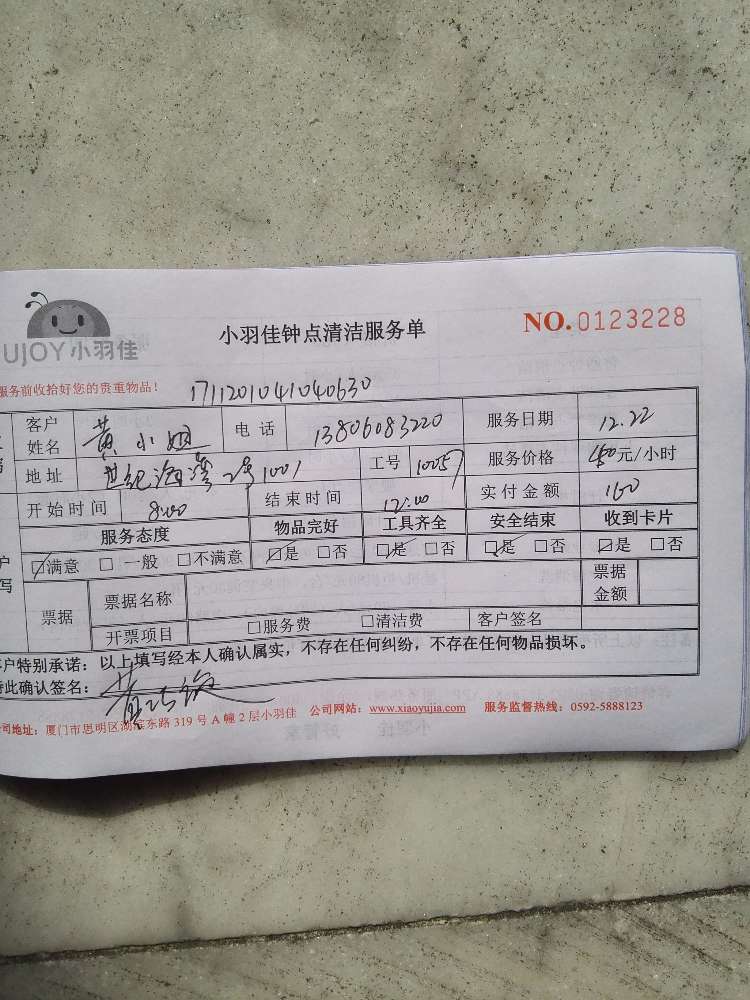 UJOY 小羽佳
小羽佳钟点清洁服务单
NO. 0123228
服务前收拾好您的贵重物品！
1711201041040630
客户姓名 黄小姐 电话 13806083220 服务日期 12.22
地址 世纪海湾2号1001 工号 10057 服务价格 元/小时
开始时间 8:00 结束时间 12:00 实付金额 160
服务态度 物品完好 工具齐全 安全结束 收到卡片
☑满意 □一般 □不满意 ☑是 □否 ☑是 □否 ☑是 □否 ☑是 □否
票据 票据名称 票据金额
开票项目 □服务费 □清洁费 客户签名
户特别承诺：以上填写经本人确认属实，不存在任何纠纷，不存在任何物品损坏。
此确认签名：黄
司地址：厦门市思明区湖滨东路319号A幢2层小羽佳 公司网站：www.xiaoyujia.com 服务监督热线：0592-5888123